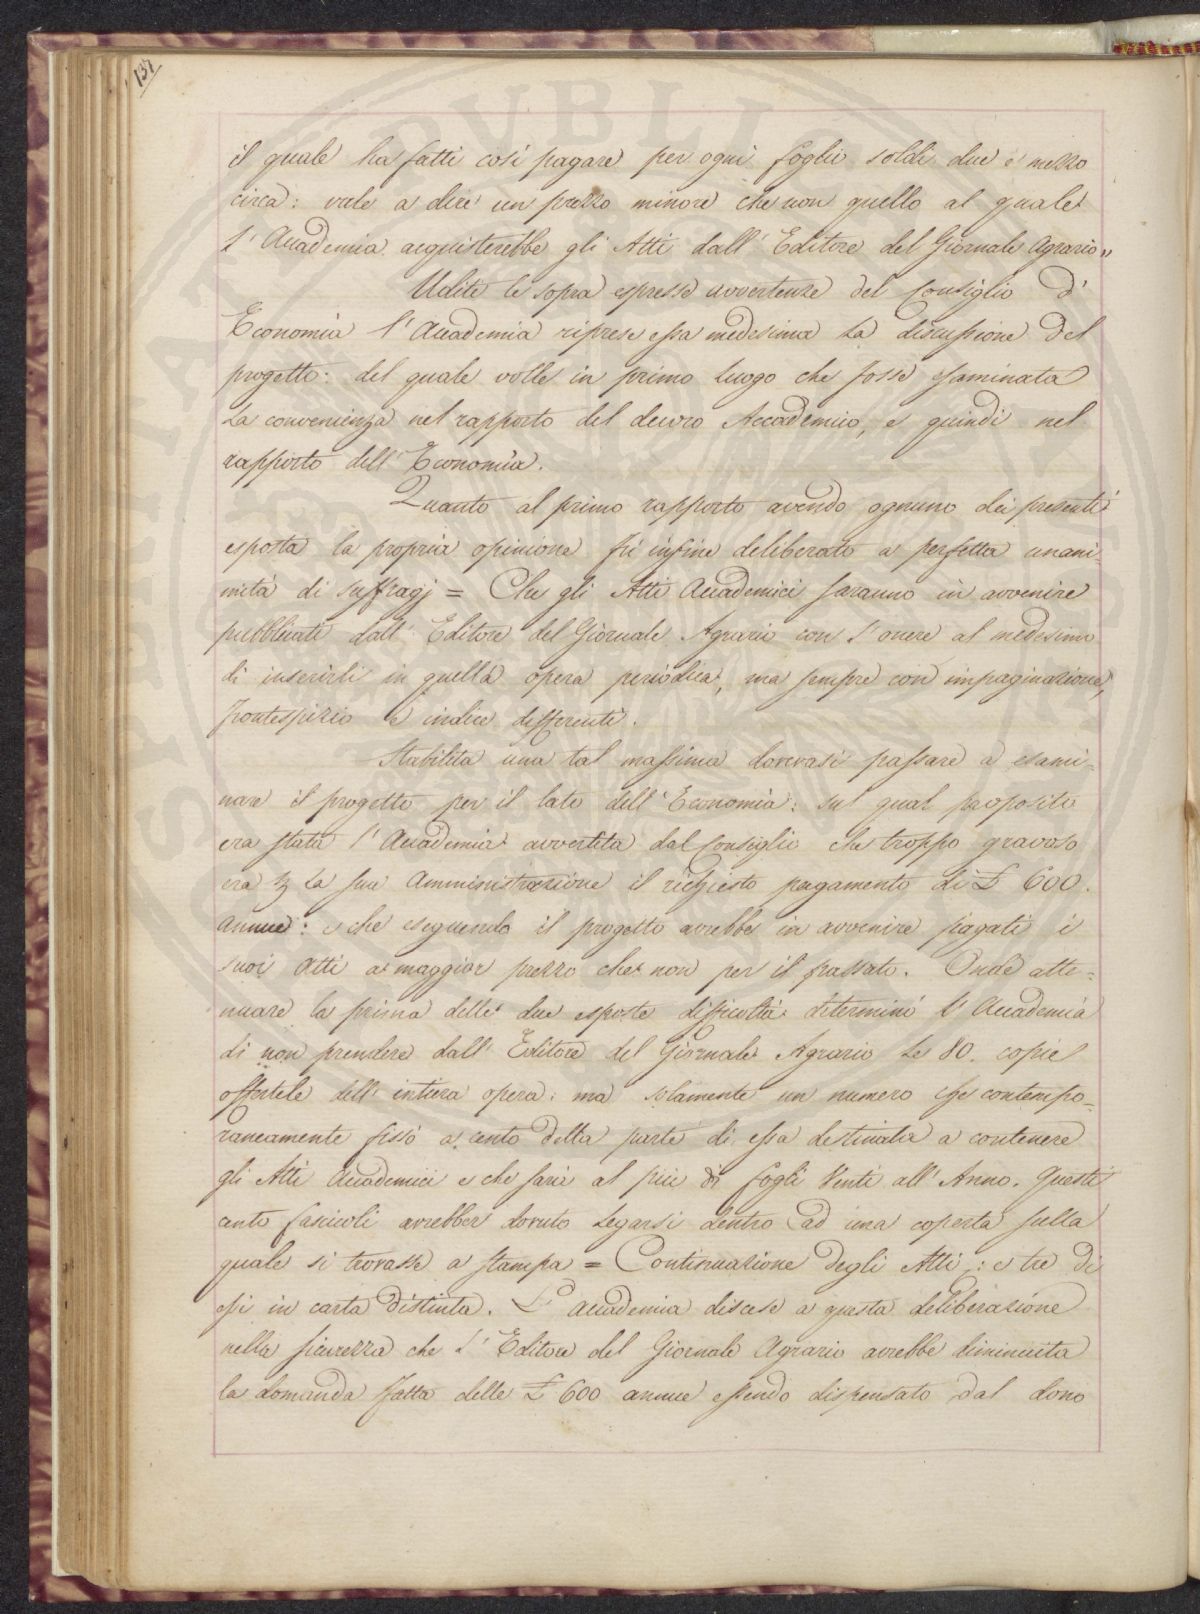 137
il quale ha fatti così pagare per ogni foglio soldi due e mezzo
circa: vale a dire un prezzo minore che non quello al quale
l'Accademia acquisterebbe gli Atti dall'Editore del Giornale Agrario"
Udite le sopra espresse avvertenze del Consiglio d'
Economia l'Accademia riprese essa medesima la discussione del
progetto: del quale volle in primo luogo che fosse esaminata
la convenienza nel rapporto del decoro Accademico, e quindi nel
rapporto dell'Economia.
Quanto al primo rapporto avendo ognuno dei presenti
esposta la propria opinione fù infine deliberato a perfetta unani-
mità di suffragj = Che gli Atti Accademici saranno in avvenire
pubblicati dall'Editore del Giornale Agrario con l'onere al medesimo
di inserirli in quella opera periodica, ma sempre con impaginazione,
frontespizio e indice differenti.
Stabilita una tal massima dovevasi passare a esami-
nare il progetto per il lato dell'Economia: sul qual proposito
era stata l'Accademia avvertita dal Consiglio che troppo gravoso
era la sua Amministrazione il richiesto pagamento di £ 600.
annue: e che eseguendo il progetto avrebbe in avvenire pagati i
suoi Atti a maggior prezzo che non per il passato. Onde atte-
nuare la prima delle due esposte difficoltà determinò l'Accademia
di non prendere dall'Editore del Giornale Agrario le 80. copie
offertele dell'intiera opera: ma solamente un numero che contempo-
raneamente fissò a cento della parte di essa destinata a contenere
gli Atti Accademici e che saria al più di fogli Venti all'Anno. Questi
cento fascicoli avrebber dovuto legarsi dentro ad una coperta sulla
quale si trovasse a stampa = Continuazione degli Atti; e tre di
essi in carta distinta. L'Accademia discese a questa deliberazione
nella sicurezza che l'Editore del Giornale Agrario avrebbe diminuita
la domanda fatta delle £ 600 annue essendo dispensato dal dono